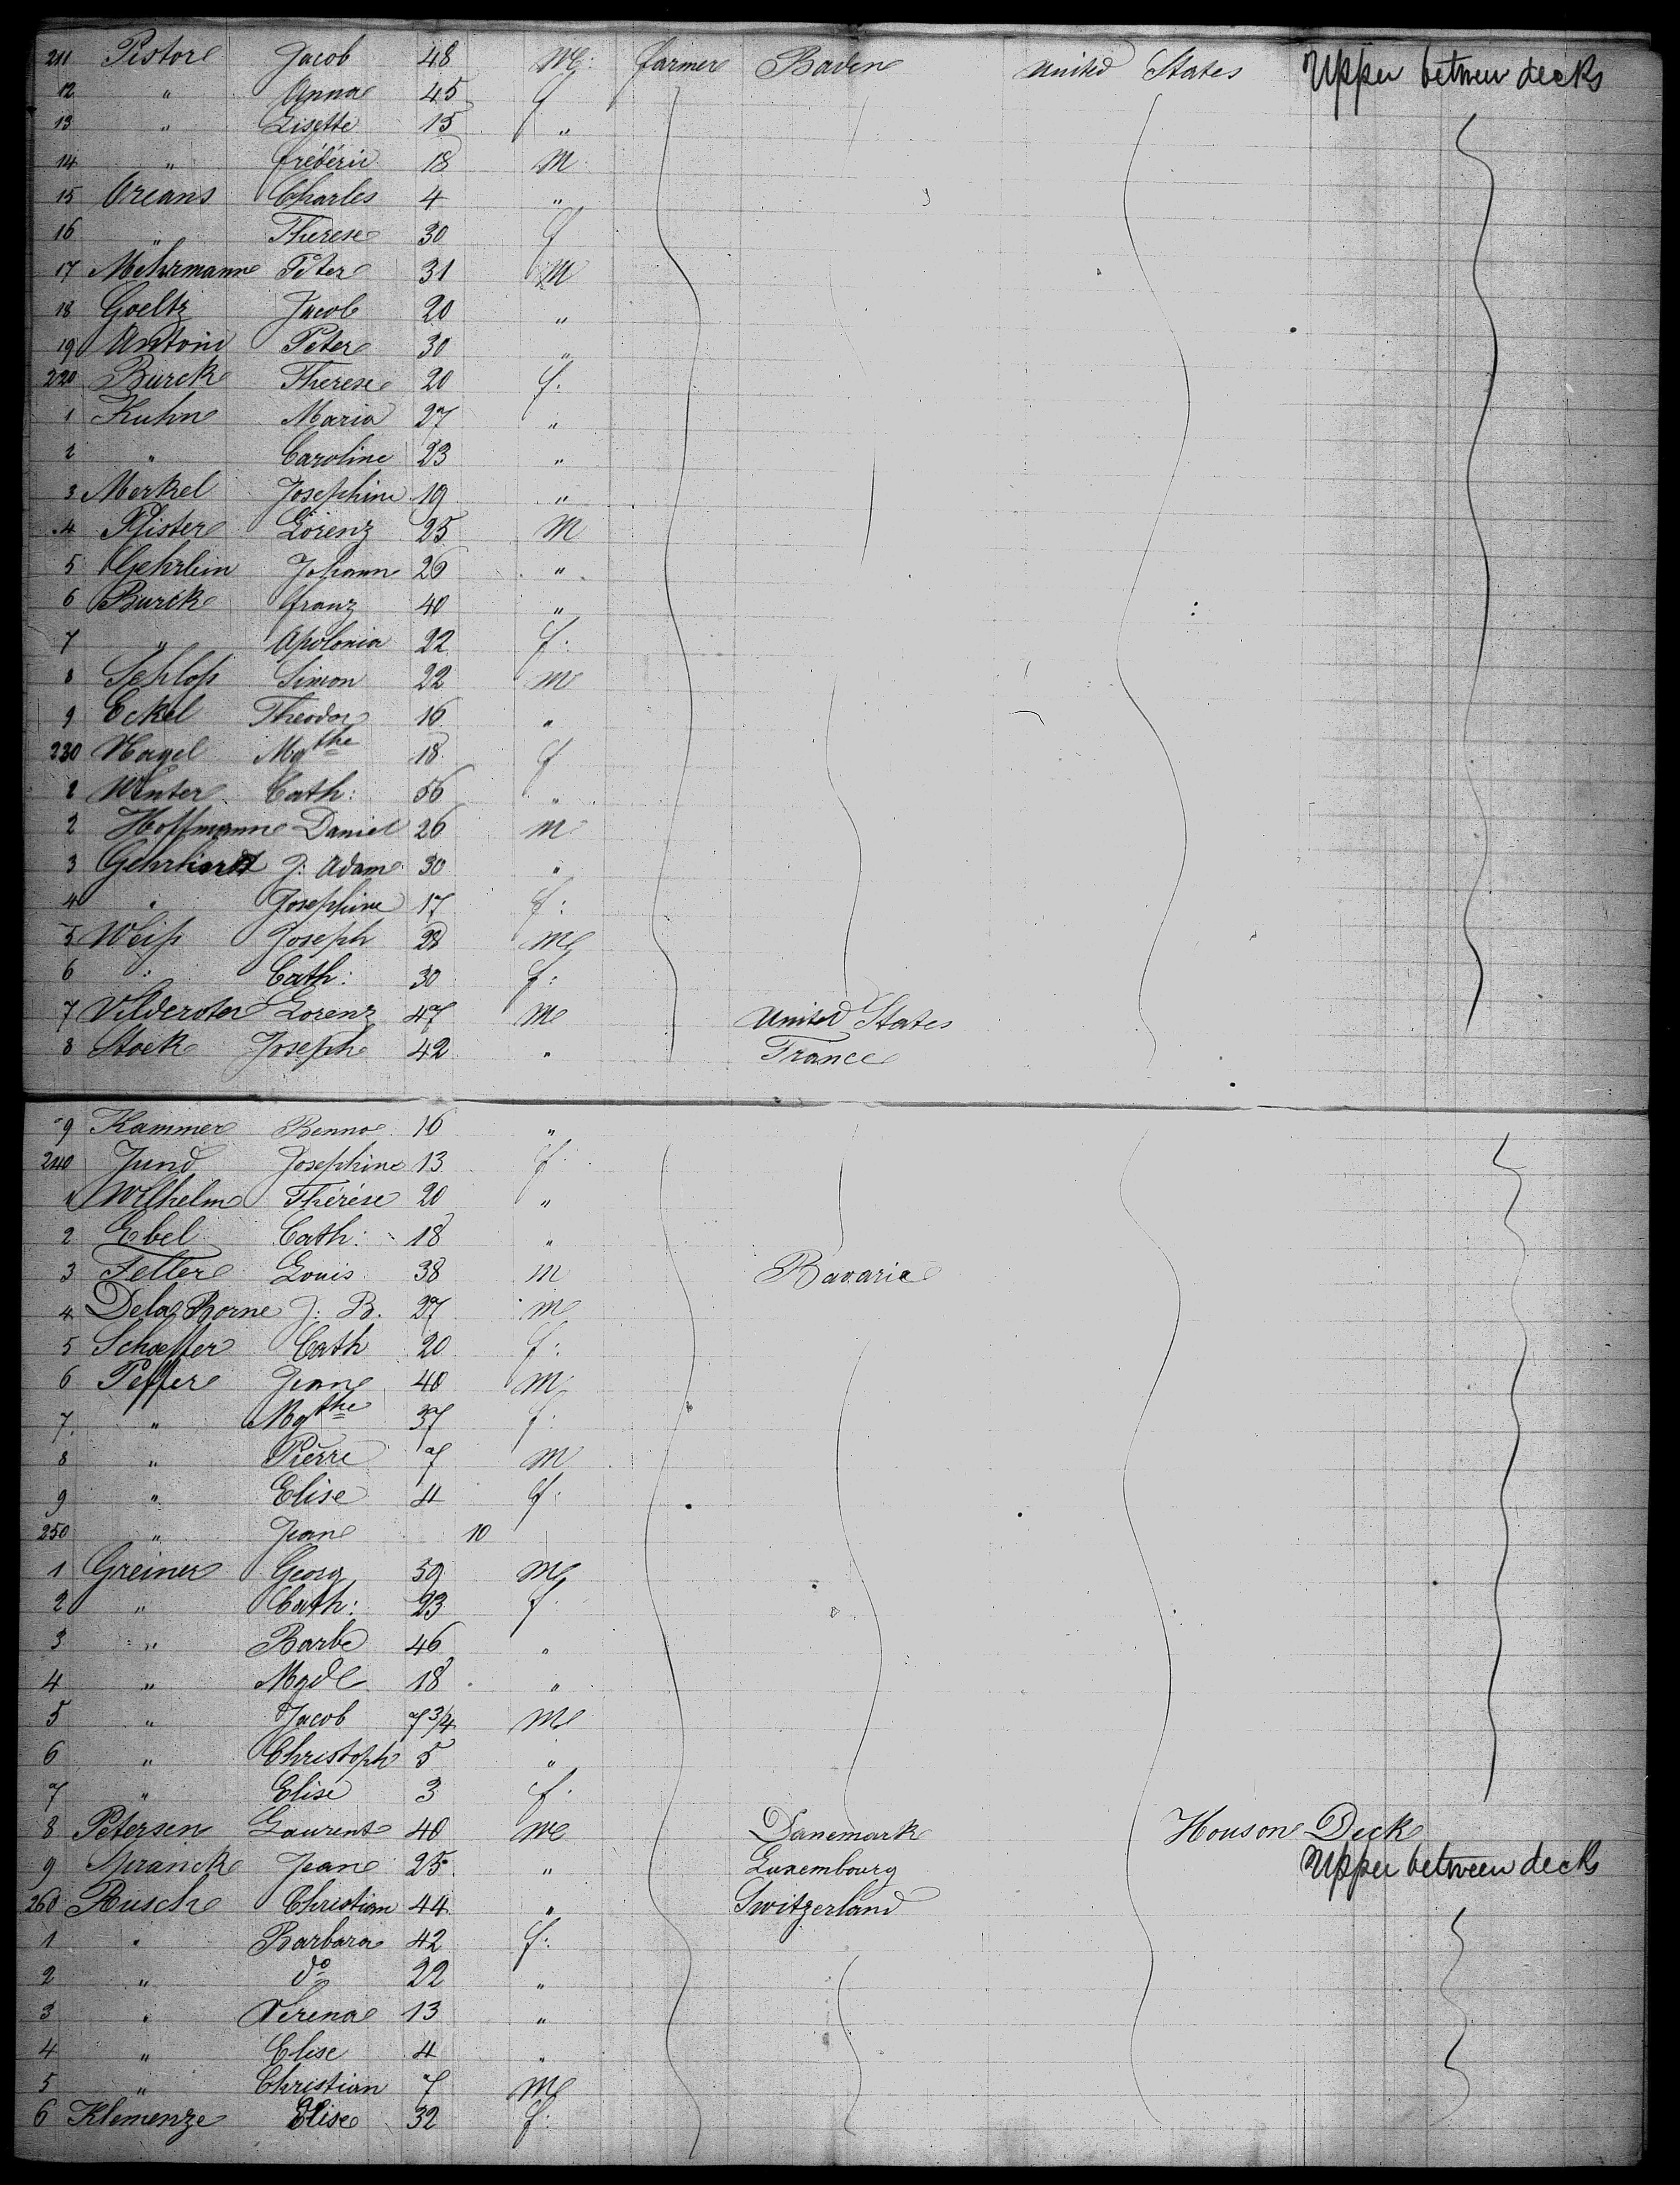 211 Pistor Jacob 48 M: farmer Baden United States Upper between decks
12 " Anna 45 f
13 " Lisette 15 "
14 " frédéric 18 M
15 Orcans Charles 4 "
16 " Therese 30 f
17 Mehrmann Peter 31 M
18 Goeltz Jacob 20 "
19 Antoni Peter 30 "
220 Burck Therese 20 f.
1 Kuhn Maria 27 "
2 " Caroline 23 "
3 Merkel Josephine 19 "
4 Pfister Lorenz 25 M
5 Gehrlein Johann 26 "
6 Burck franz 40 "
7 " Apolonia 22 f.
8 Schloß Simon 22 m
9 Eckel Theodor 16 "
230 Nagel Mgthe 18 f
1 Winter Cath: 56 "
2 Hoffmann Daniel 26 m
3 Gehrhardt J. Adam 30 "
4 " Josephine 17 f:
5 Weiß Joseph 28 M
6 " Cath: 30 f:
7 Vilderoter Lorenz 47 M United States
8 Stock Joseph 42 " France
9 Kammer Benno 16 "
240 Jund Josephine 13 f.
1 Wilhelm Thérése 20 "
2 Ebel Cath: 18 "
3 Feller Louis 38 m Bavaria
4 Dela Borne J. B. 27 m
5 Schaeffer Cath 20 f:
6 Peffer Jean 40 M
7. " Mgthe 37 f.
8 " Pierre 7 M
9 " Elise 4 f.
250 " Jean 10
1 Greiner Georg 59 M
2 " Cath: 23 f.
3 " Barbe 46 "
4 " Mgdl 18 "
5 " Jacob 7 3/4 M
6 " Christoph 5 "
7 " Elise 3 f.
8 Petersen Laurent 40 M Danemark Houson Deck
9 Jean 25 " Luxembourg Upper between decks
260 Rusch Christian 44 " Switzerland
1 " Barbara 42 f:
2 " do 22 "
3 " Verena 13 "
4 " Elise 4 "
5 " Christian 7 M
6 Klemenze Elise 32 f: